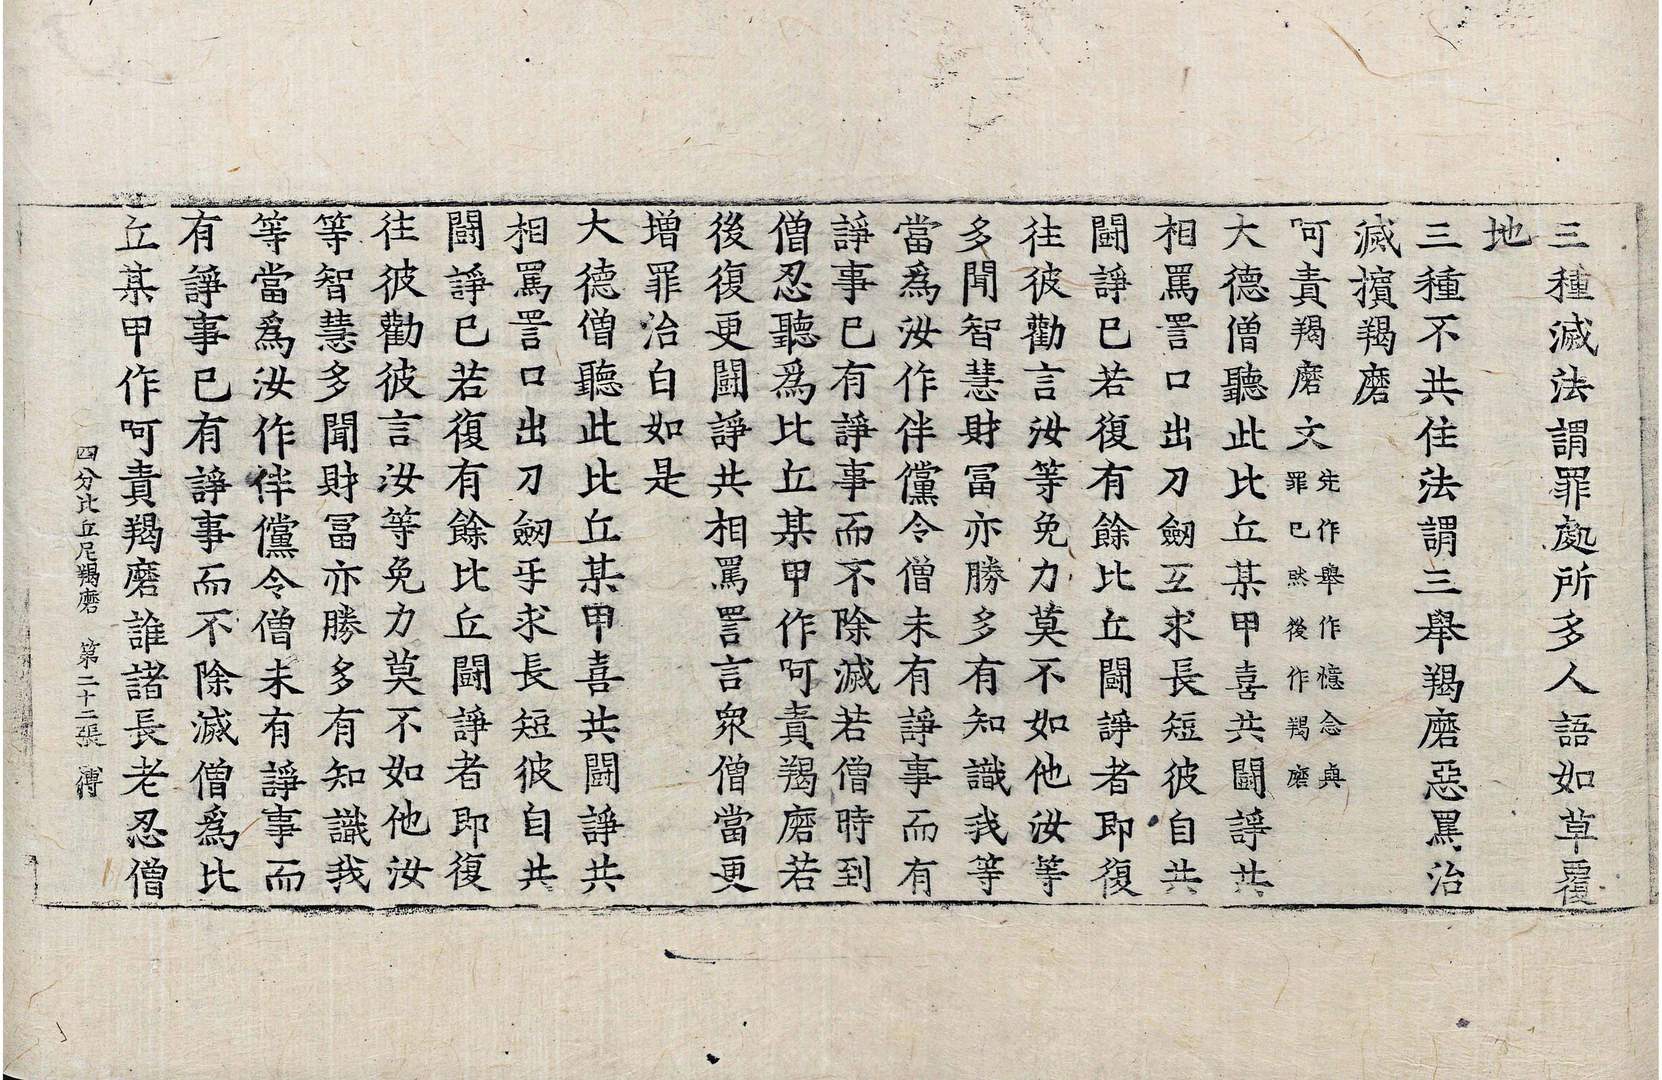 三種滅法謂罪處所多人語如草覆
地
三種不共住法謂三舉羯磨惡罵治
滅擯羯磨
呵責羯磨文先作舉作憶念與
罪已然後作羯磨
大德僧聽此比丘某甲喜共鬪諍共
相罵詈口出刀劒互求長短彼自共
鬪諍已若復有餘比丘鬪諍者即復
往彼勸言汝等免力莫不如他汝等
多聞智慧財冨亦勝多有知識我等
當爲汝作伴儻令僧未有諍事而有
諍事已有諍事而不除滅若僧時到
僧忍聽爲比丘某甲作呵責羯磨若
後復更鬪諍共相罵詈言衆僧當更
增罪治白如是
大德僧聽此比丘某甲喜共鬪諍共
相罵詈口出刀劒乎求長短彼自共
鬪諍已若復有餘比丘鬪諍者即復
往彼勸彼言汝等免力莫不如他汝
等智慧多聞財冨亦勝多有知識我
等當爲汝作伴儻令僧未有諍事而
有諍事已有諍事而不除滅僧爲比
丘某甲作呵責羯磨誰諸長老忍僧
四分比丘尼羯磨 第二十二張 溥